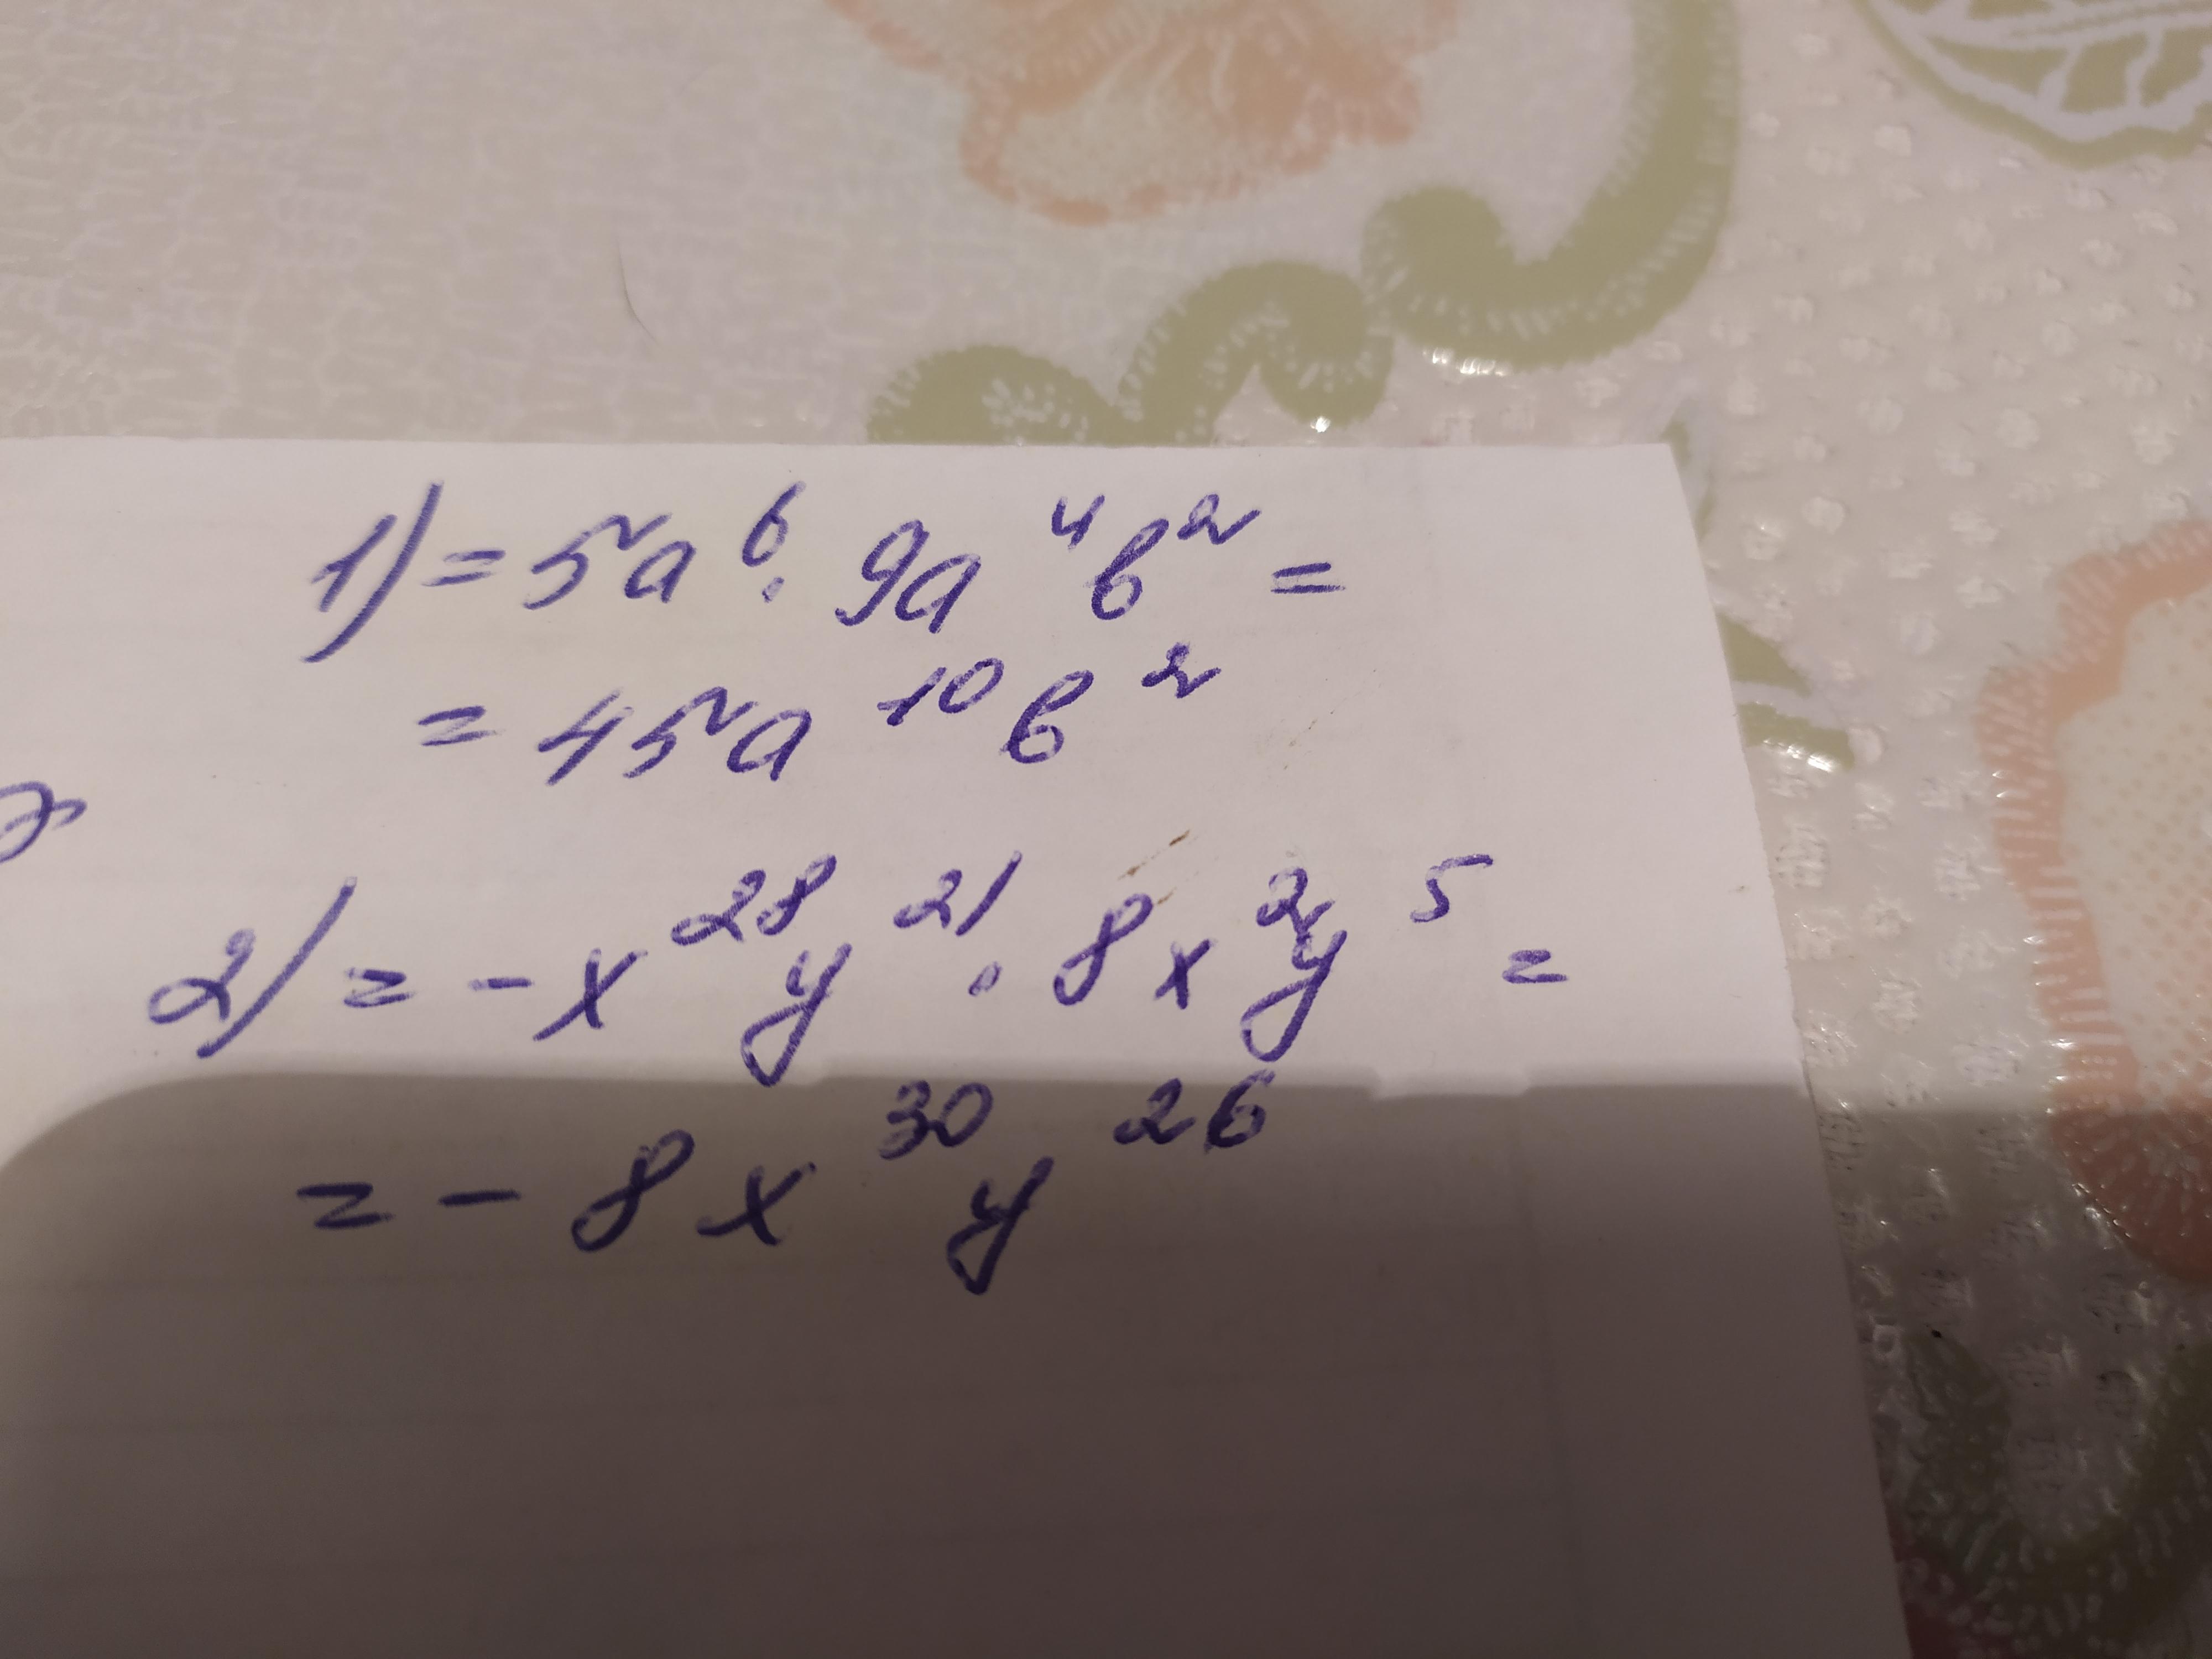 1) = 5a⁶ · 9a⁴b² =
= 45a¹⁰b²
2) = -x²⁸y²¹ · 8x²y⁵ =
= - 8x³⁰y²⁶